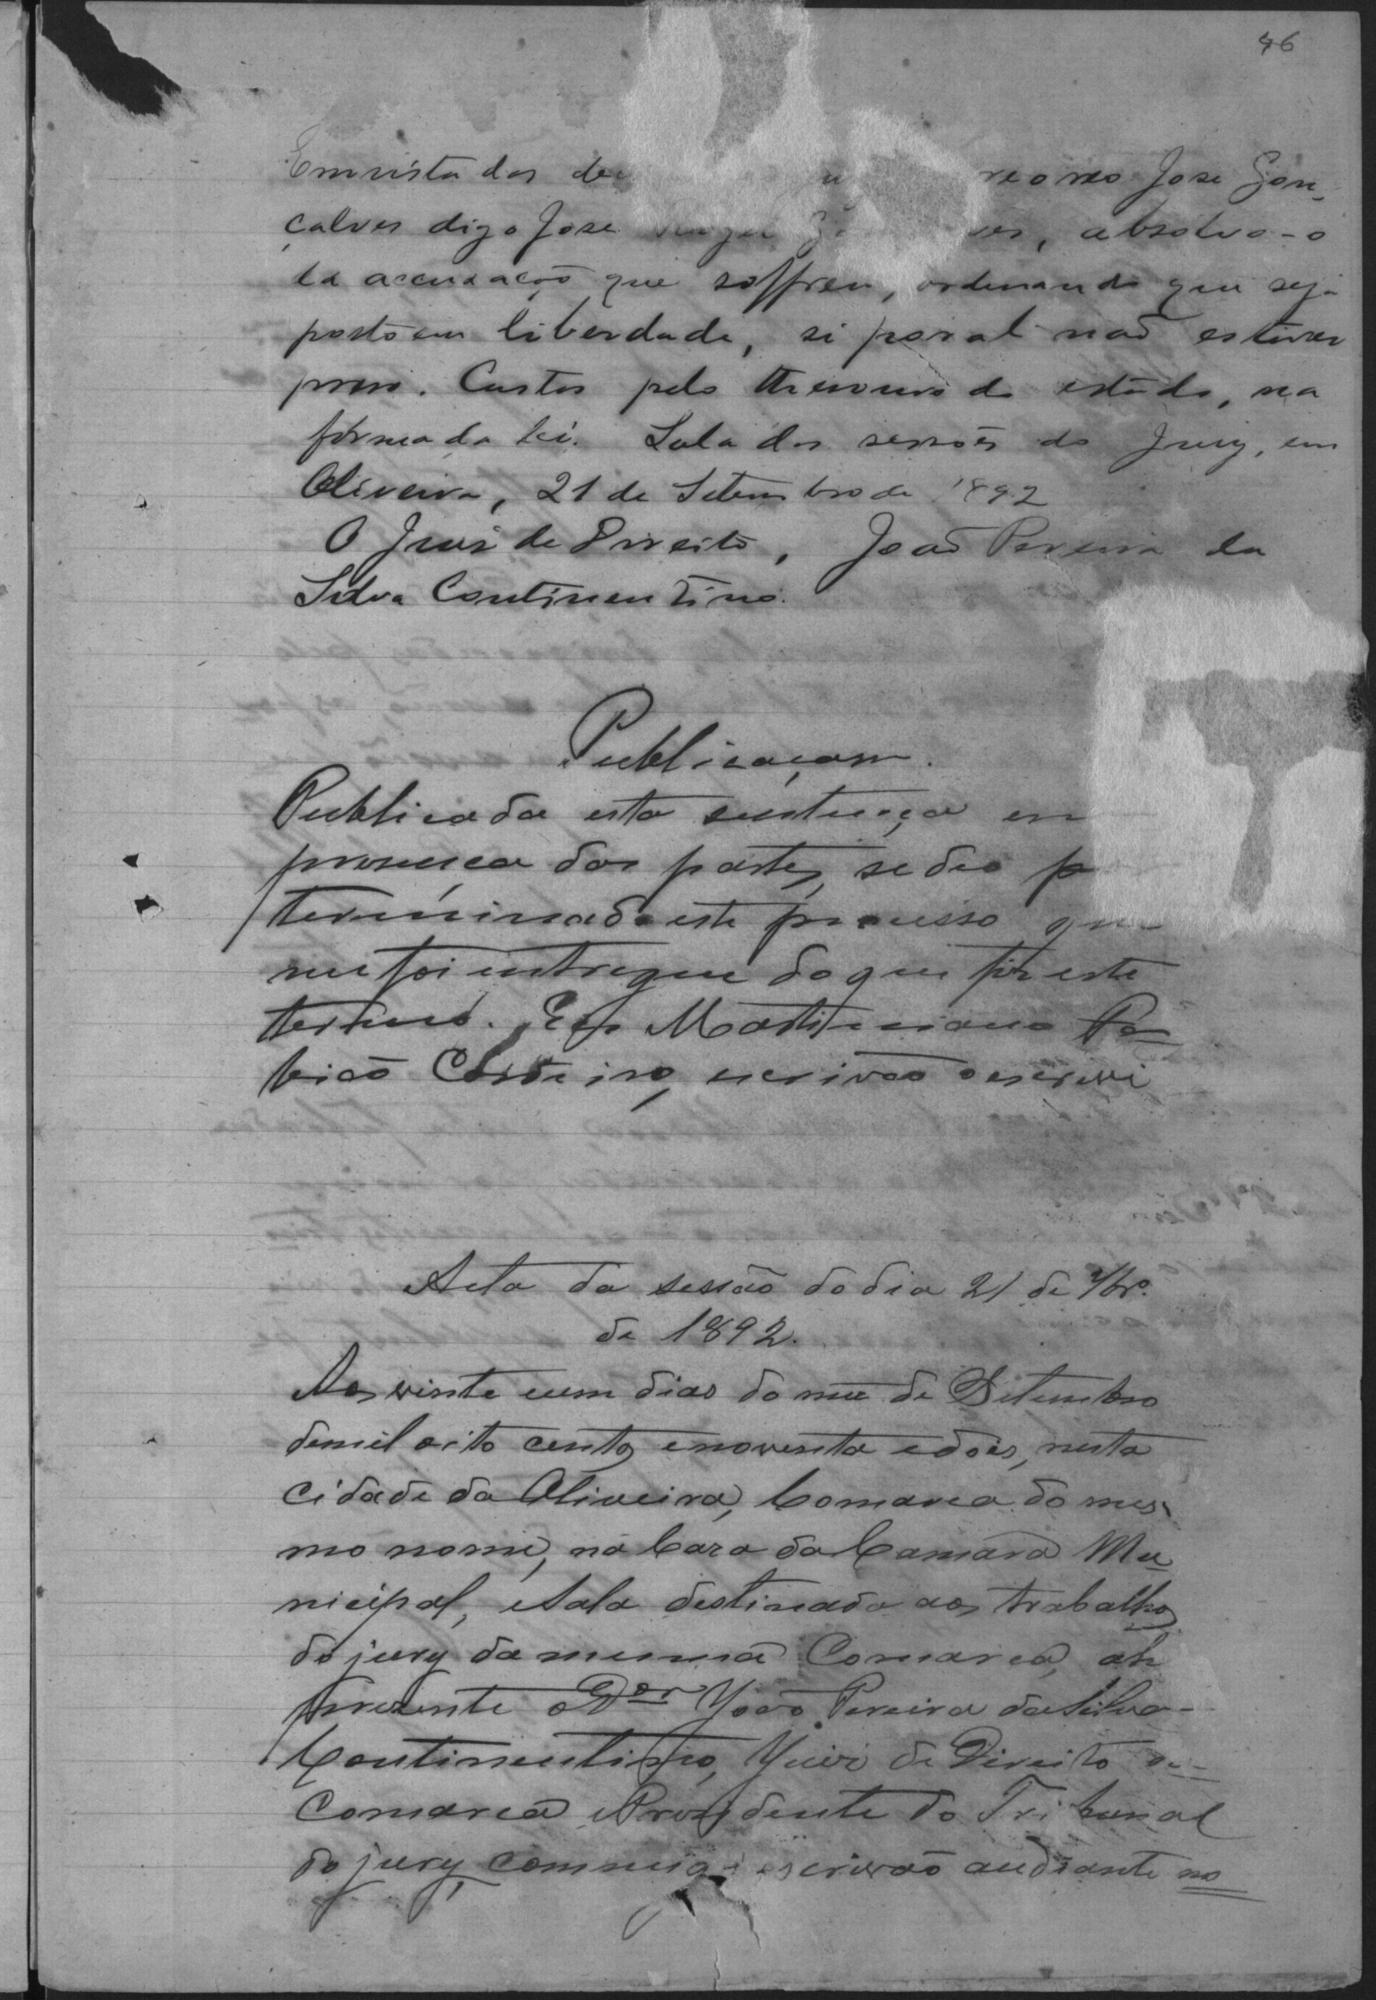 46
Em vista das de reo José Gon-
çalves digo José absolvo-o
da accusação que soffreu, ordenando que seja
posto em liberdade, si por al não estiver
preso. Custas pelo thesouro do estado, na
fórma da lei. Sala das sessões do Jury, em
Oliveira, 21 de Setembro de 1892
O Juiz de Direito, João Pereira da
Silva Continentino.
Publicaçam.
Publicada esta sentença em
presença das partes, se deo p
terminado este processo que
me foi entregue do que fiz este
termo. Eu Martiniano
Cordeiro, escrivão o escrevi
Acta da sessão do dia 21 de 7br.º
de 1892.
Aos vinte eum dias do mez de Setembro
demil oito centos enoventa edois, nesta
cidade da Oliveira, Comarca do mes-
mo nome, na Caza da Camara Mu
nicipal, e Sala destinada aos trabalhos
do jury da mesma Comarca, ahi
prezente o Dor João Pereira da Silva-
Continentino, Juiz de Direito da
Comarca e Prezidente do Tribunal
do jury, commigo escrivão audiante no